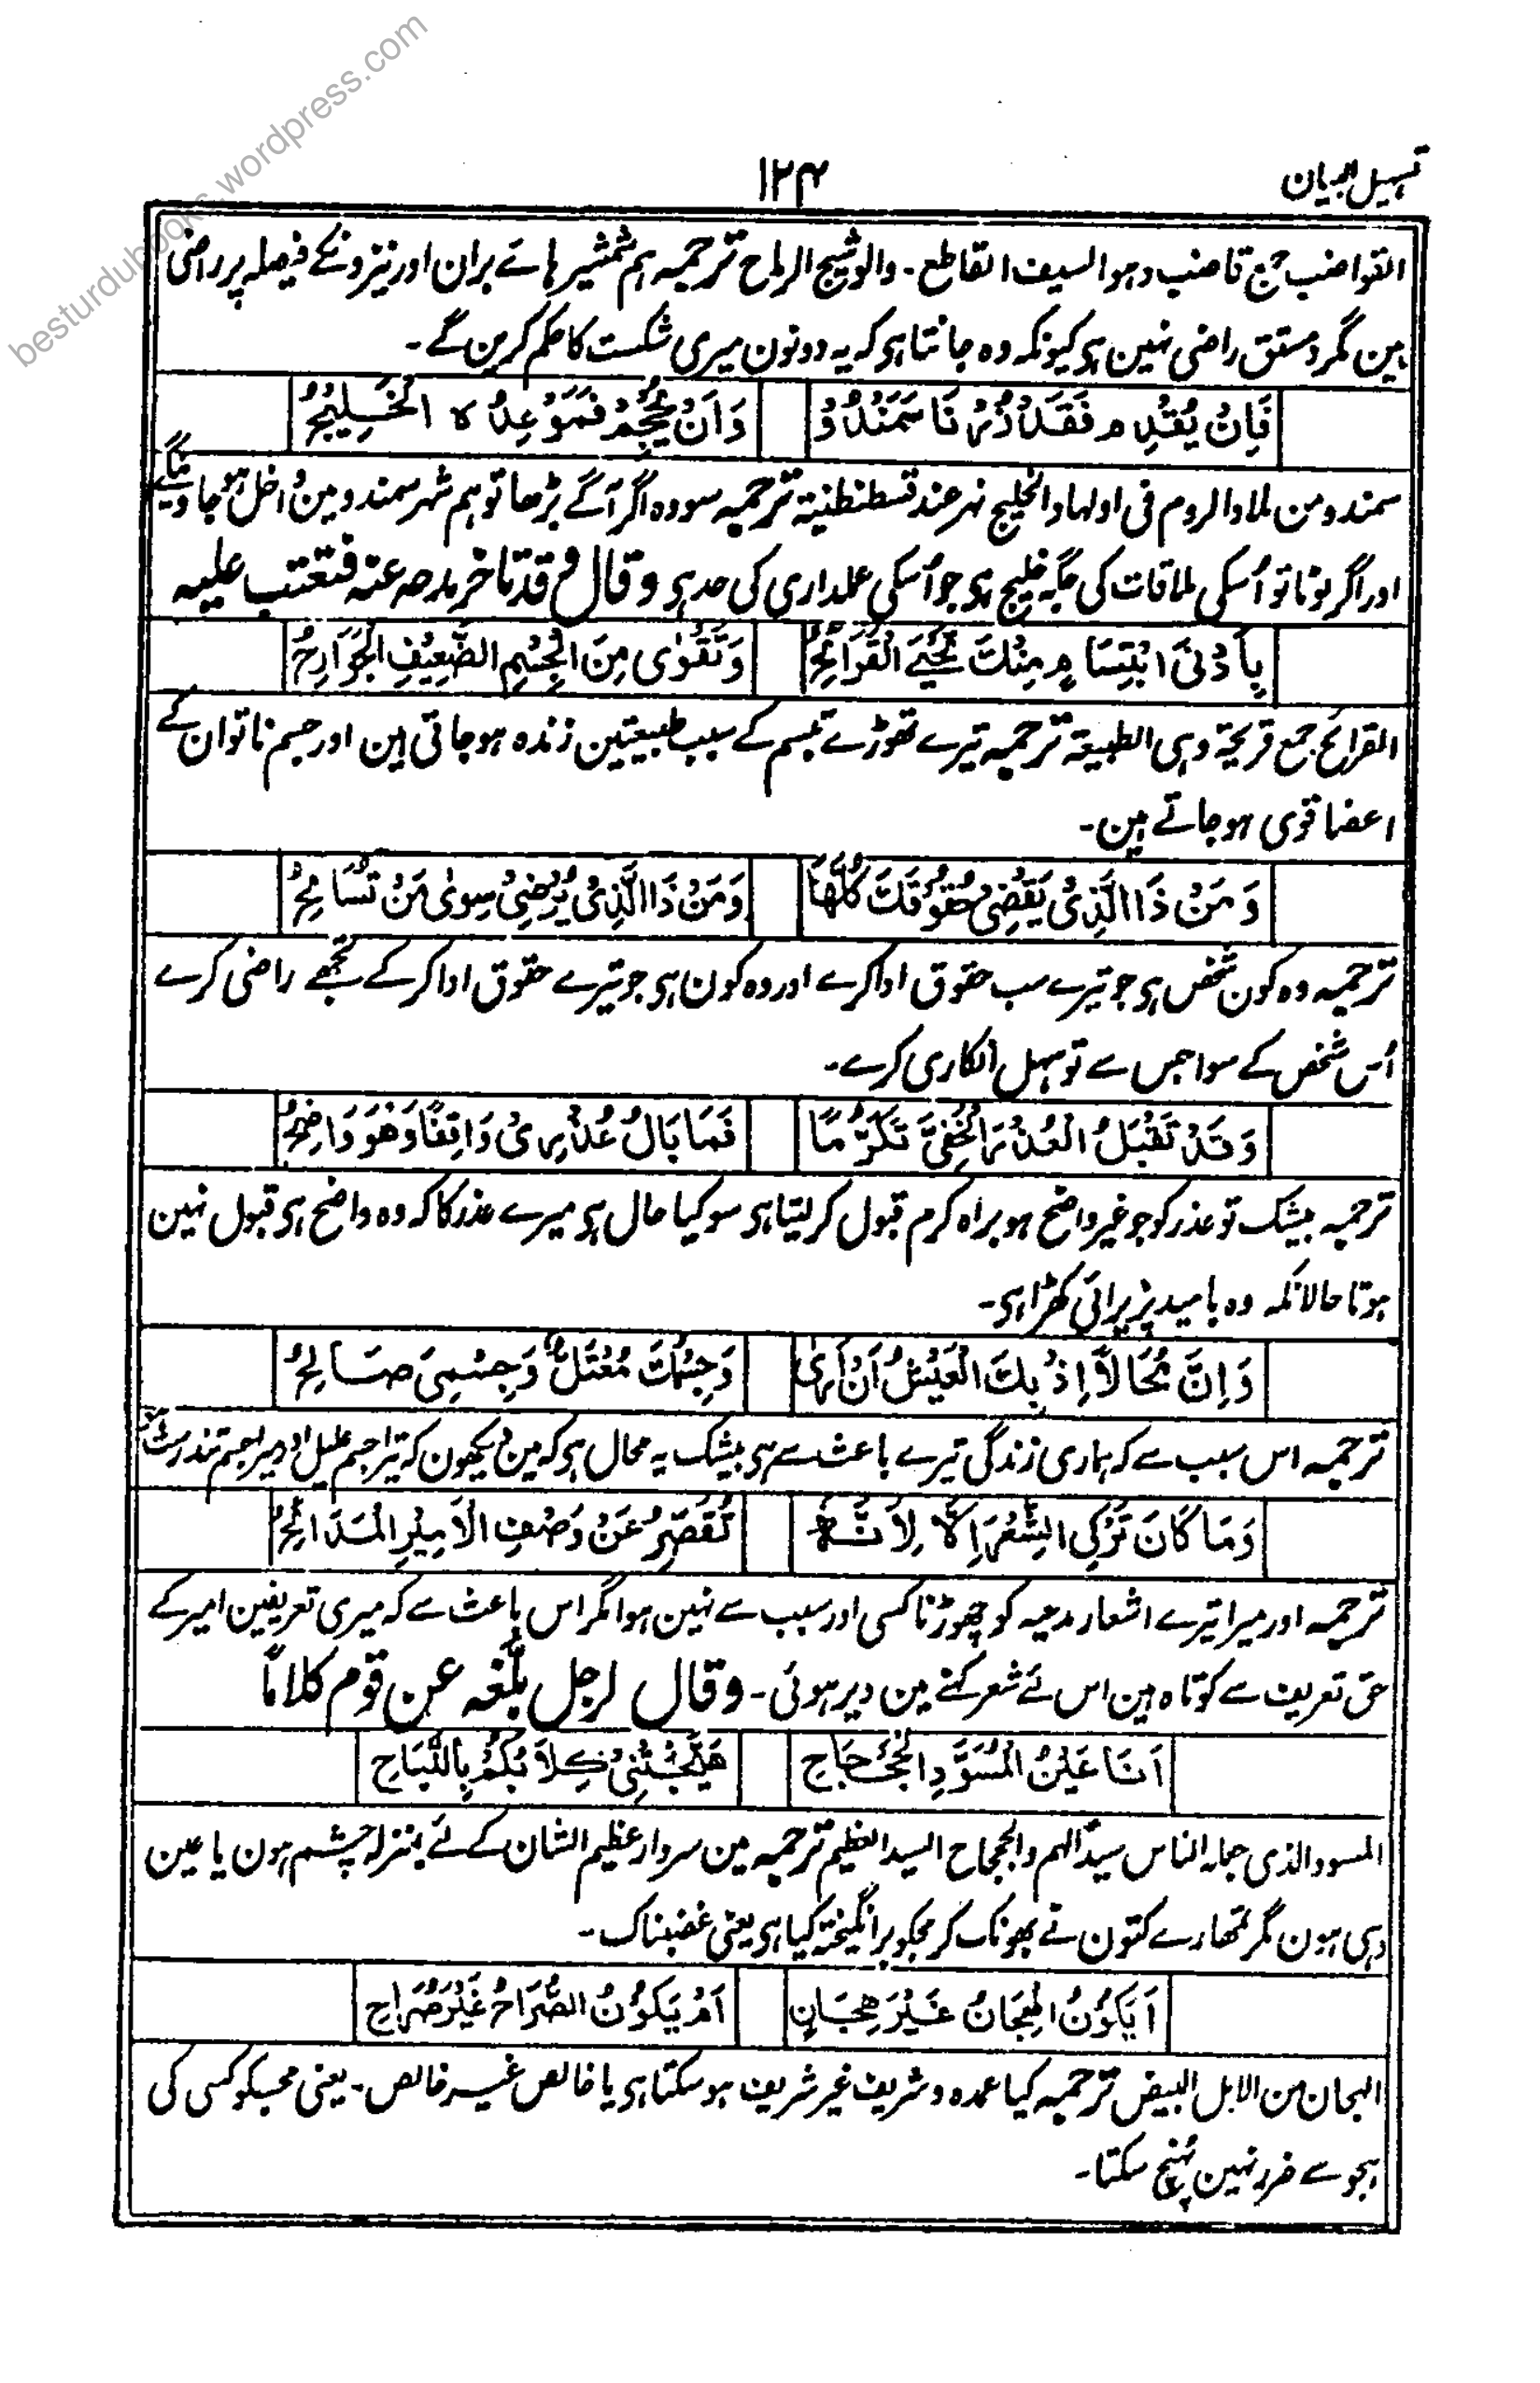 besturdubooks.wordpress.com
تسہیل البیان
۱۲۴
القواضب جمع قاضب وہو السیف القاطع۔ والوشیج الرماح ترجمہ ہم شمشیر ہائے بران اور نیزونکے فیصلہ پر راضی
ہین مگر دمستق راضی نہین ہی کیونکہ وہ جانتا ہی کہ یہ دونون میری شکست کا حکم کرین گے۔
فَاِنْ يُقْدِمْ فَقَدْ زُرْنَا سَمَنْدُوْ وَاَنْ يُحْجِمْ فَمَوْعِدُهُ الْخَلِيْجُ
سمندو من بلاد الروم فی اولہا والخلیج نہر عند قسطنطنیۃ ترجمہ سو وہ اگر آگے بڑھا تو ہم شہر سمندو مین داخل ہو جاوینگے
اور اگر لوٹا تو اُسکی ملاقات کی جگہ خلیج ہی جو اُسکی عملداری کی حد ہی وقال وقد تاخر مدحہ عنہ فتعتب علیہ
بِاَدْنَى ابْتِسَامٍ مِنْكَ تَحْيَى الْقَرَائِحُ وَتَقْوٰى مِنَ الْجِسْمِ الضَّعِيْفِ الْجَوَارِحُ
القرائح جمع قریحۃ وہی الطبیعۃ ترجمہ تیرے تھوڑے تبسم کے سبب طبیعتین زندہ ہوجاتی ہین اور جسم ناتوان کے
اعضا قوی ہوجاتے ہین۔
وَمَنْ ذَا الَّذِىْ يَقْضِىْ حُقُوْقَكَ كُلَّهَا وَمَنْ ذَا الَّذِىْ يُرْضِىْ سِوٰى مَنْ تُسَامِحُ
ترجمہ وہ کون شخص ہی جو تیرے سب حقوق ادا کرے اور وہ کون ہی جو تیرے حقوق ادا کرکے تجھے راضی کرے
اُس شخص کے سوا جس سے تو سہل انکاری کرے۔
وَقَدْ تَقْبَلُ الْعُذْرَ الْخَفِىَّ تَكَرُّمًا فَمَا بَالُ عُذْرِىْ وَاقِفًا وَهْوَ وَاضِحُ
ترجمہ بیشک تو عذر کو جو غیر واضح ہو براہ کرم قبول کرلیتا ہی سو کیا حال ہی میرے عذر کا کہ وہ واضح ہی قبول نہین
ہوتا حالانکہ وہ بامید پذیرائی کھڑا ہی۔
وَاِنَّ مُحَالًا اِذْ بِكَ الْعَيْشُ اَنْ اُرٰى وَجِسْمُكَ مُعْتَلٌّ وَجِسْمِىَ صَالِحُ
ترجمہ اس سبب سے کہ ہماری زندگی تیرے باعث سے ہی بیشک یہ محال ہی کہ مین دیکھون کہ تیرا جسم علیل اور میرا جسم تندرست ہو
وَمَا كَانَ تَرْكِى الشِّعْرَ اِلَّا لِاَنَّهُ تُقَصِّرُ عَنْ وَصْفِ الْاَمِيْرِ الْمَدَائِحُ
ترجمہ اور میرا تیرے اشعار مدحیہ کو چھوڑنا کسی اور سبب سے نہین ہوا مگر اس باعث سے کہ میری تعریفین امیر کے
حق تعریف سے کوتاہ ہین اس لئے شعر کہنے مین دیر ہوئی۔ وقال لرجل بلّغہ عن قوم کلامًا
اَنَا عَيْنُ الْمُسَوَّدِ الْجَحْجَاحِ هَيَّجَتْنِىْ كِلَابُكُمْ بِالنُّبَاحِ
المسود الذی جعلہ الناس سیدًا لہم والجحجاح السید العظیم ترجمہ مین سردار عظیم الشان کے لئے بمنزلہ چشم ہون یا عین
وہی ہون مگر تمھارے کتون نے بھونک کر مجکو برانگیختہ کیا ہی یعنی غضبناک۔
اَيَكُوْنُ الْهِجَانُ غَيْرَ هِجَانٍ اَمْ يَكُوْنُ الصُّرَاحُ غَيْرَ صُرَاحِ
الہجان من الابل البیض ترجمہ کیا عمدہ و شریف غیر شریف ہوسکتا ہی یا خالص غیر خالص۔ یعنی مجکو کسی کی
ہجو سے ضرر نہین پہنچ سکتا۔